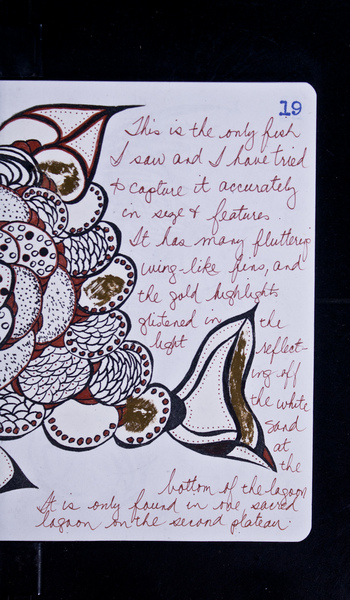 19
This is the only fish
I saw and I have tried
to capture it accurately
in size & features.
It has many fluttering
wing-like fins, and
the gold highlights
glistened in the
light reflect-
ing off
the white
sand
at
the
bottom of the lagoon
It is only found in one sacred
lagoon on the second plateau.